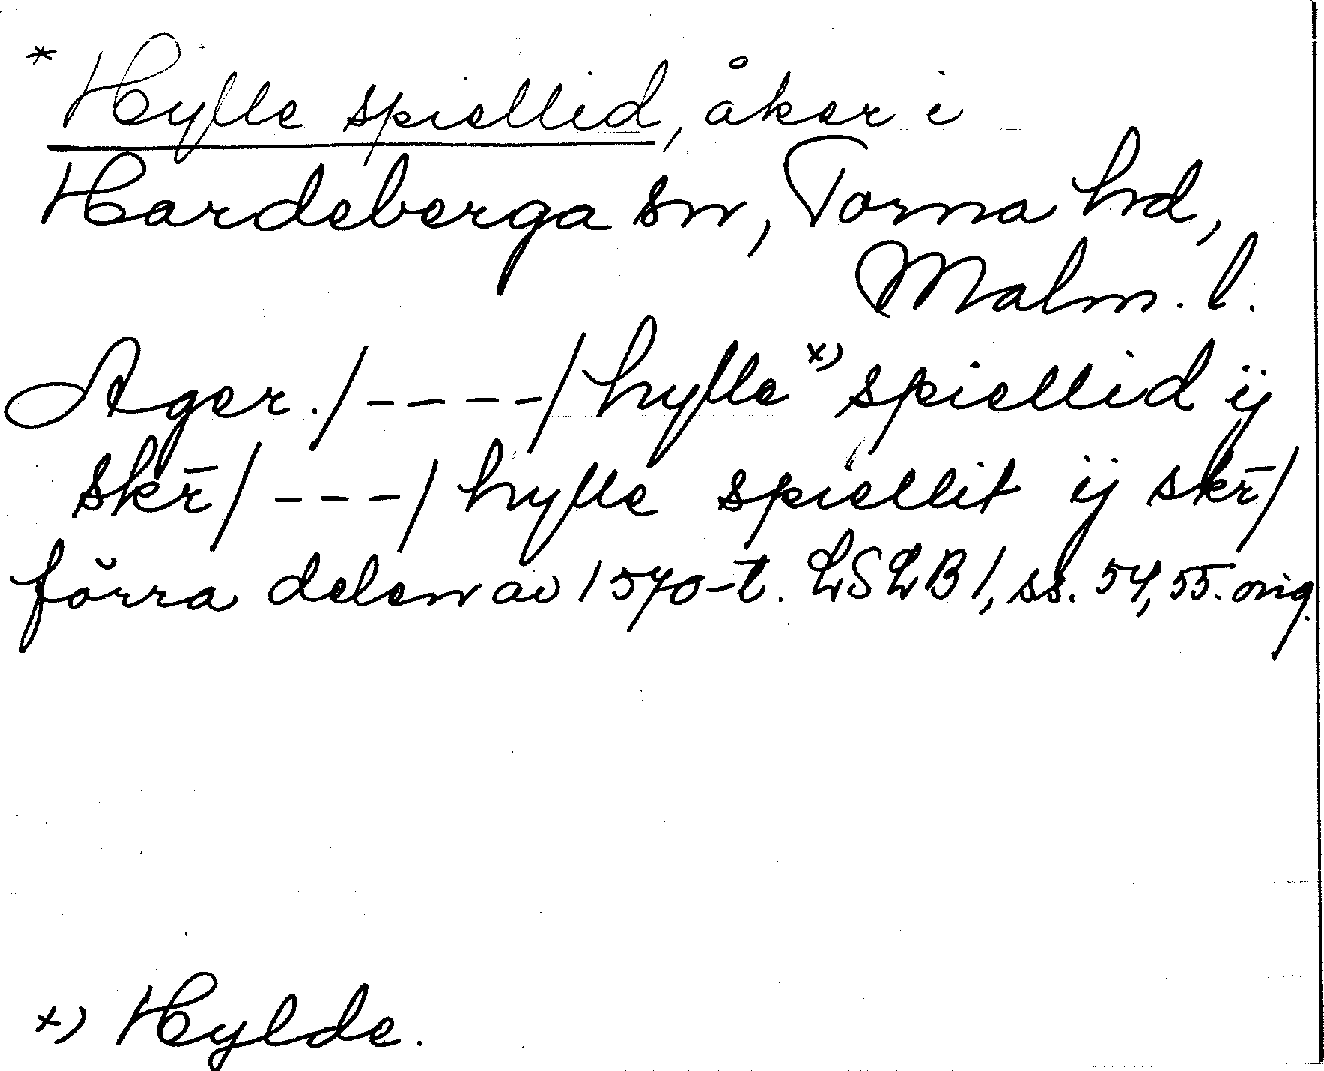 * Hylle spiellid, åker i
Hardeberga sn, Torna hd,
Malm. l.
Ager. /----/ hylle x) spiellid ij
skr̄/ ---/ hylle spiellit ij skr̄/
förra delen av 1570-t. LSLB 1, ss. 54, 55. orig.
x) Hylde.